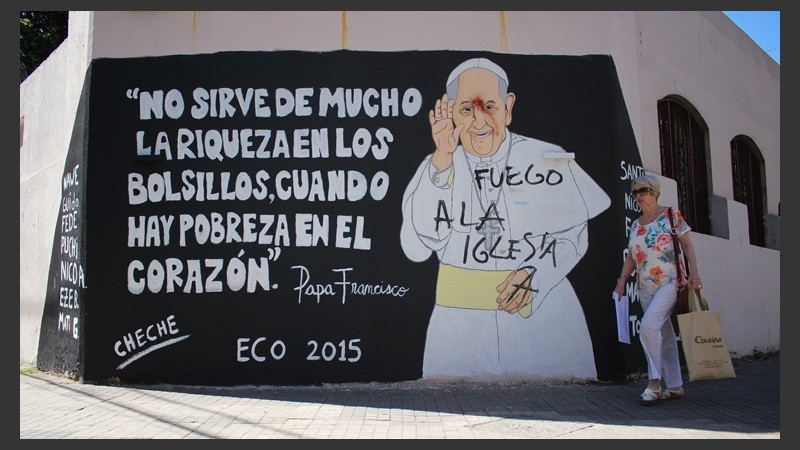 “NO SIRVE DE MUCHO
LA RIQUEZA EN LOS
BOLSILLOS, CUANDO
HAY POBREZA EN EL
CORAZÓN”.
Papa Francisco
CHECHE
ECO 2015
FUEGO
A LA
IGLESIA
GUIDO
FEDE
PUCHI
NICO
EZE B.
MATI G.
SANTI
NICO
Casino